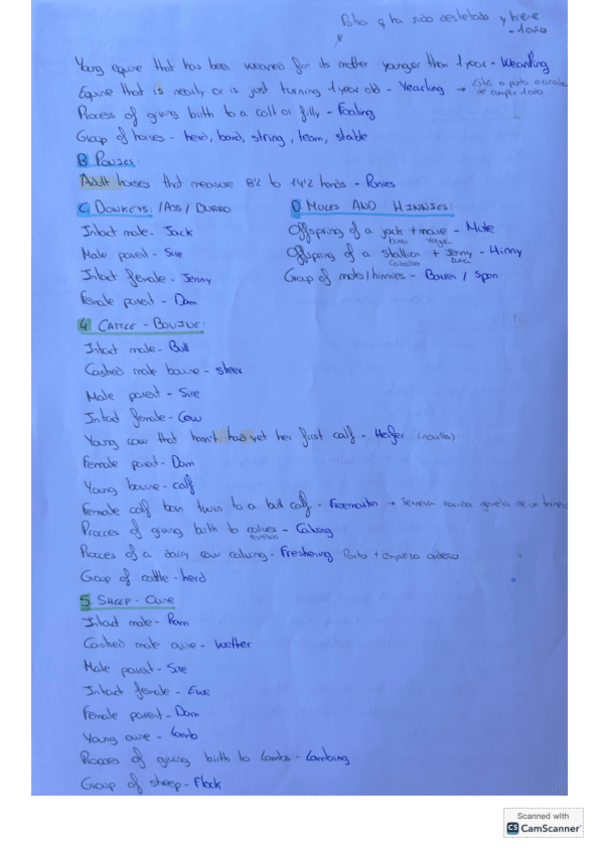 Potro q ha sido destetado y tiene
- 1 año
Young equine that has been weaned for its mother younger than 1 year - Weanling
Equine that is nearly or is just turning 1 year old - Yearling →
de cumplir 1 año
Process of giving birth to a colt or filly - Foaling
Group of horses - herd, band, string, team, stable
B PONIES:
Adult horses that measure 8'2 to 14'2 hands - Ponies
C. DONKEYS: / ASS / BURRO
Intact male - Jack
Male parent - Sire
Intact female - Jenny
Female parent - Dam
D MULES AND HINNIES:
Offspring of a jack + mare - Mule
burro yegua
Offspring of a stallion + Jenny - Hinny
caballo burra
Group of mules/hinnies - Barren / Span
4. CATTLE - BOVINE:
Intact male - Bull
Castred male bovine - steer
Male parent - Sire
Intact female - Cow
Young cow that hasn't had yet her first calf - Heifer (novilla)
Female parent - Dam
Young bovine - calf
Female calf born twin to a bull calf - Freemartin → Ternera nacida gemela de un
Procces of giving birth to calves - Calving
terneros
Procces of a dairy cow calving - Freshening Parto + empieza
Group of cattle - herd
5. SHEEP - Ovine
Intact male - Ram
Castred male ovine - Wether
Male parent - Sire
Intact female - Ewe
Female parent - Dam
Young ovine - Lamb
Procces of giving birth to lambs - Lambing
Group of sheep - Flock
Scanned with
CS CamScanner